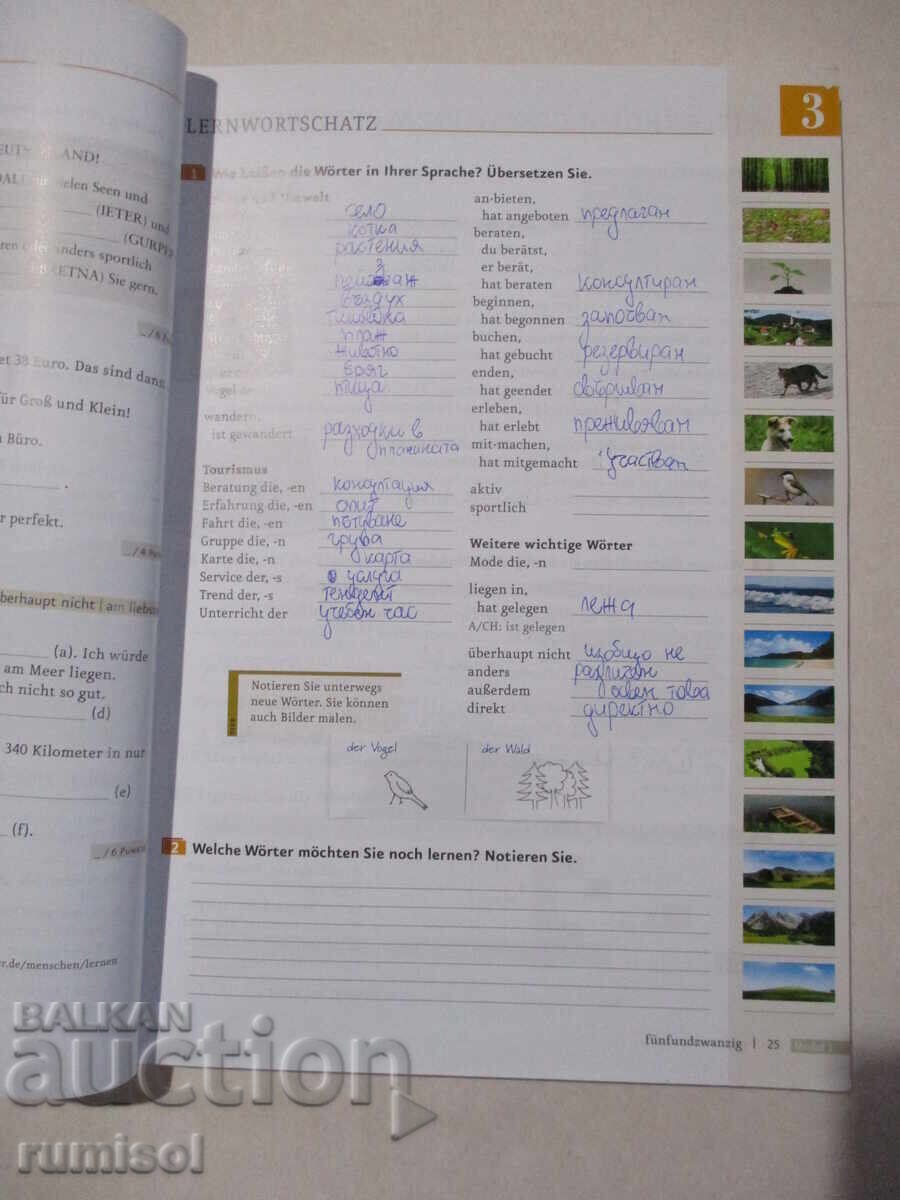 EUTSCHLAND!
elen Seen und
(IETER) und
anders sportlich
ETNA) Sie gern.
et 38 Euro. Das sind dann
für Groß und Klein!
Büro.
r perfekt.
überhaupt nicht | am liebsten
(a). Ich würde
am Meer liegen.
ch nicht so gut.
(d)
340 Kilometer in nur
(e)
(f).
/ 6 Punkte
er.de/menschen/lernen
LERNWORTSCHATZ
3
1 Wie heißen die Wörter in Ihrer Sprache? Übersetzen Sie.
село
котка
растения
въздух
план
животно
бряг
Vogel птица
wandern,
ist gewandert разходки в
планината
Tourismus
Beratung die, -en консултация
Erfahrung die, -en опит
Fahrt die, -en пътуване
Gruppe die, -n група
Karte die, -n карта
Service der, -s услуга
Trend der, -s
Unterricht der учебен час
TIPP
Notieren Sie unterwegs
neue Wörter. Sie können
auch Bilder malen.
an·bieten,
hat angeboten предлаган
beraten,
du berätst,
er berät,
hat beraten консултиран
beginnen,
hat begonnen започван
buchen,
hat gebucht резервиран
enden,
hat geendet свършван
erleben,
hat erlebt преживяван
mit·machen,
hat mitgemacht участван
aktiv
sportlich
Weitere wichtige Wörter
Mode die, -n
liegen in,
hat gelegen лежа
A/CH: ist gelegen
überhaupt nicht изобщо не
anders различен
außerdem освен това
direkt директно
der Vogel
der Wald
2 Welche Wörter möchten Sie noch lernen? Notieren Sie.
fünfundzwanzig | 25 Modul 1
BALKAN
auction
rumisol